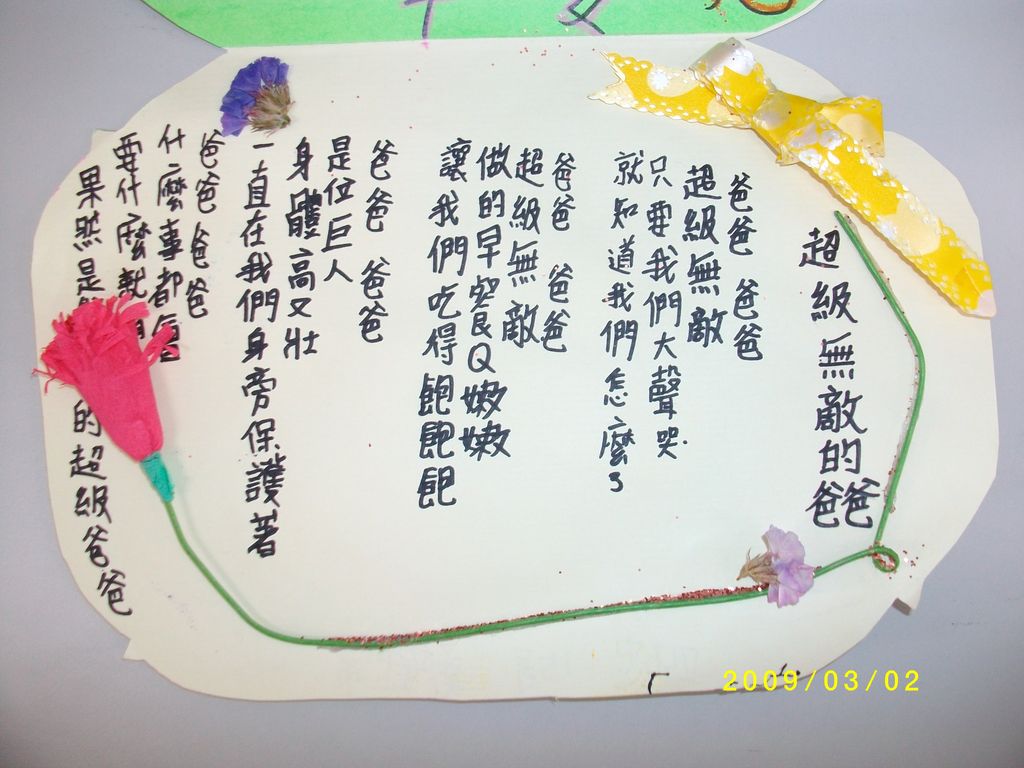 超級無敵的爸爸
爸爸 爸爸
超級無敵
只要我們大聲哭
就知道我們怎麼了
爸爸 爸爸
超級無敵
做的早餐Q嫩嫩
讓我們吃得飽飽飽
爸爸 爸爸
是位巨人
身體高又壯
一直在我們身旁保護著
爸爸 爸爸
什麼事都
要什麼
果然是 的超級爸爸
2009/03/02